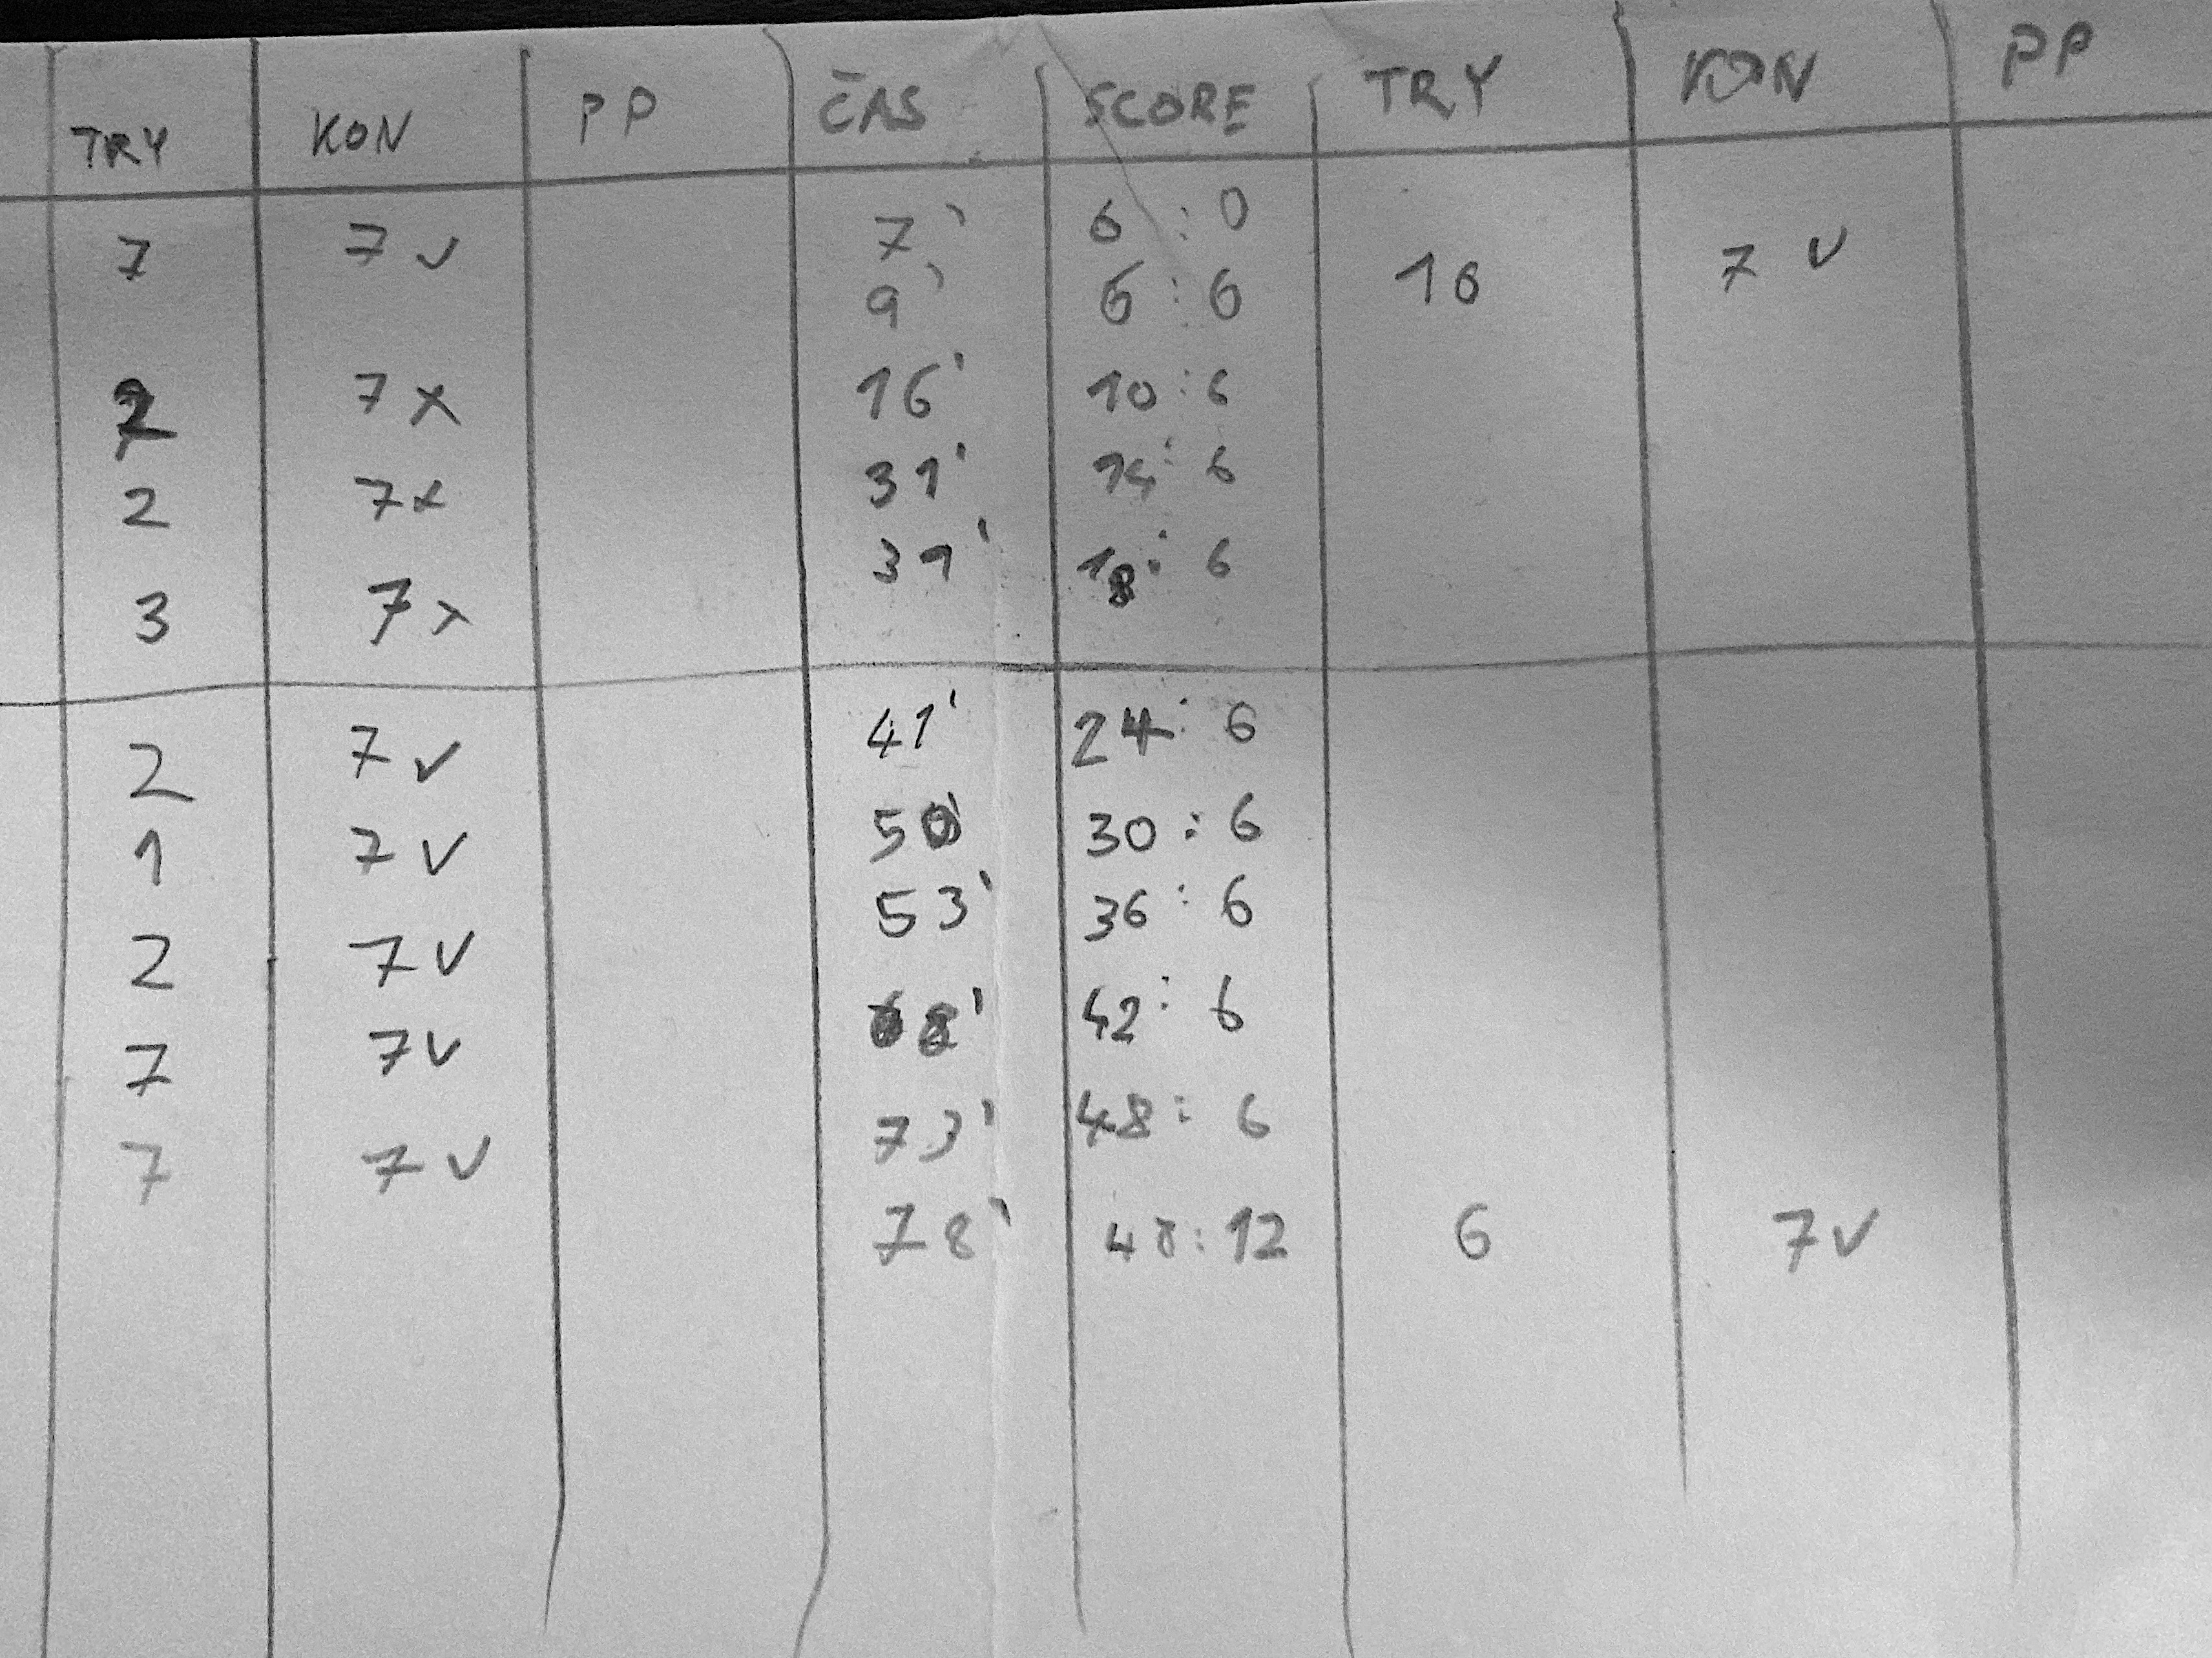 TRY KON PP ČAS SCORE TRY KON PP
7 7 ✓ 7' 6 : 0
9' 6 : 6 10 7 ✓
2 7 x 16' 10 : 6
2 7 x 31' 14 : 6
3 7 x 39' 18 : 6
2 7 ✓ 41' 24 : 6
1 7 ✓ 50' 30 : 6
2 7 ✓ 53' 36 : 6
7 7 ✓ 68' 42 : 6
7 7 ✓ 73' 48 : 6
78' 48 : 12 6 7 ✓